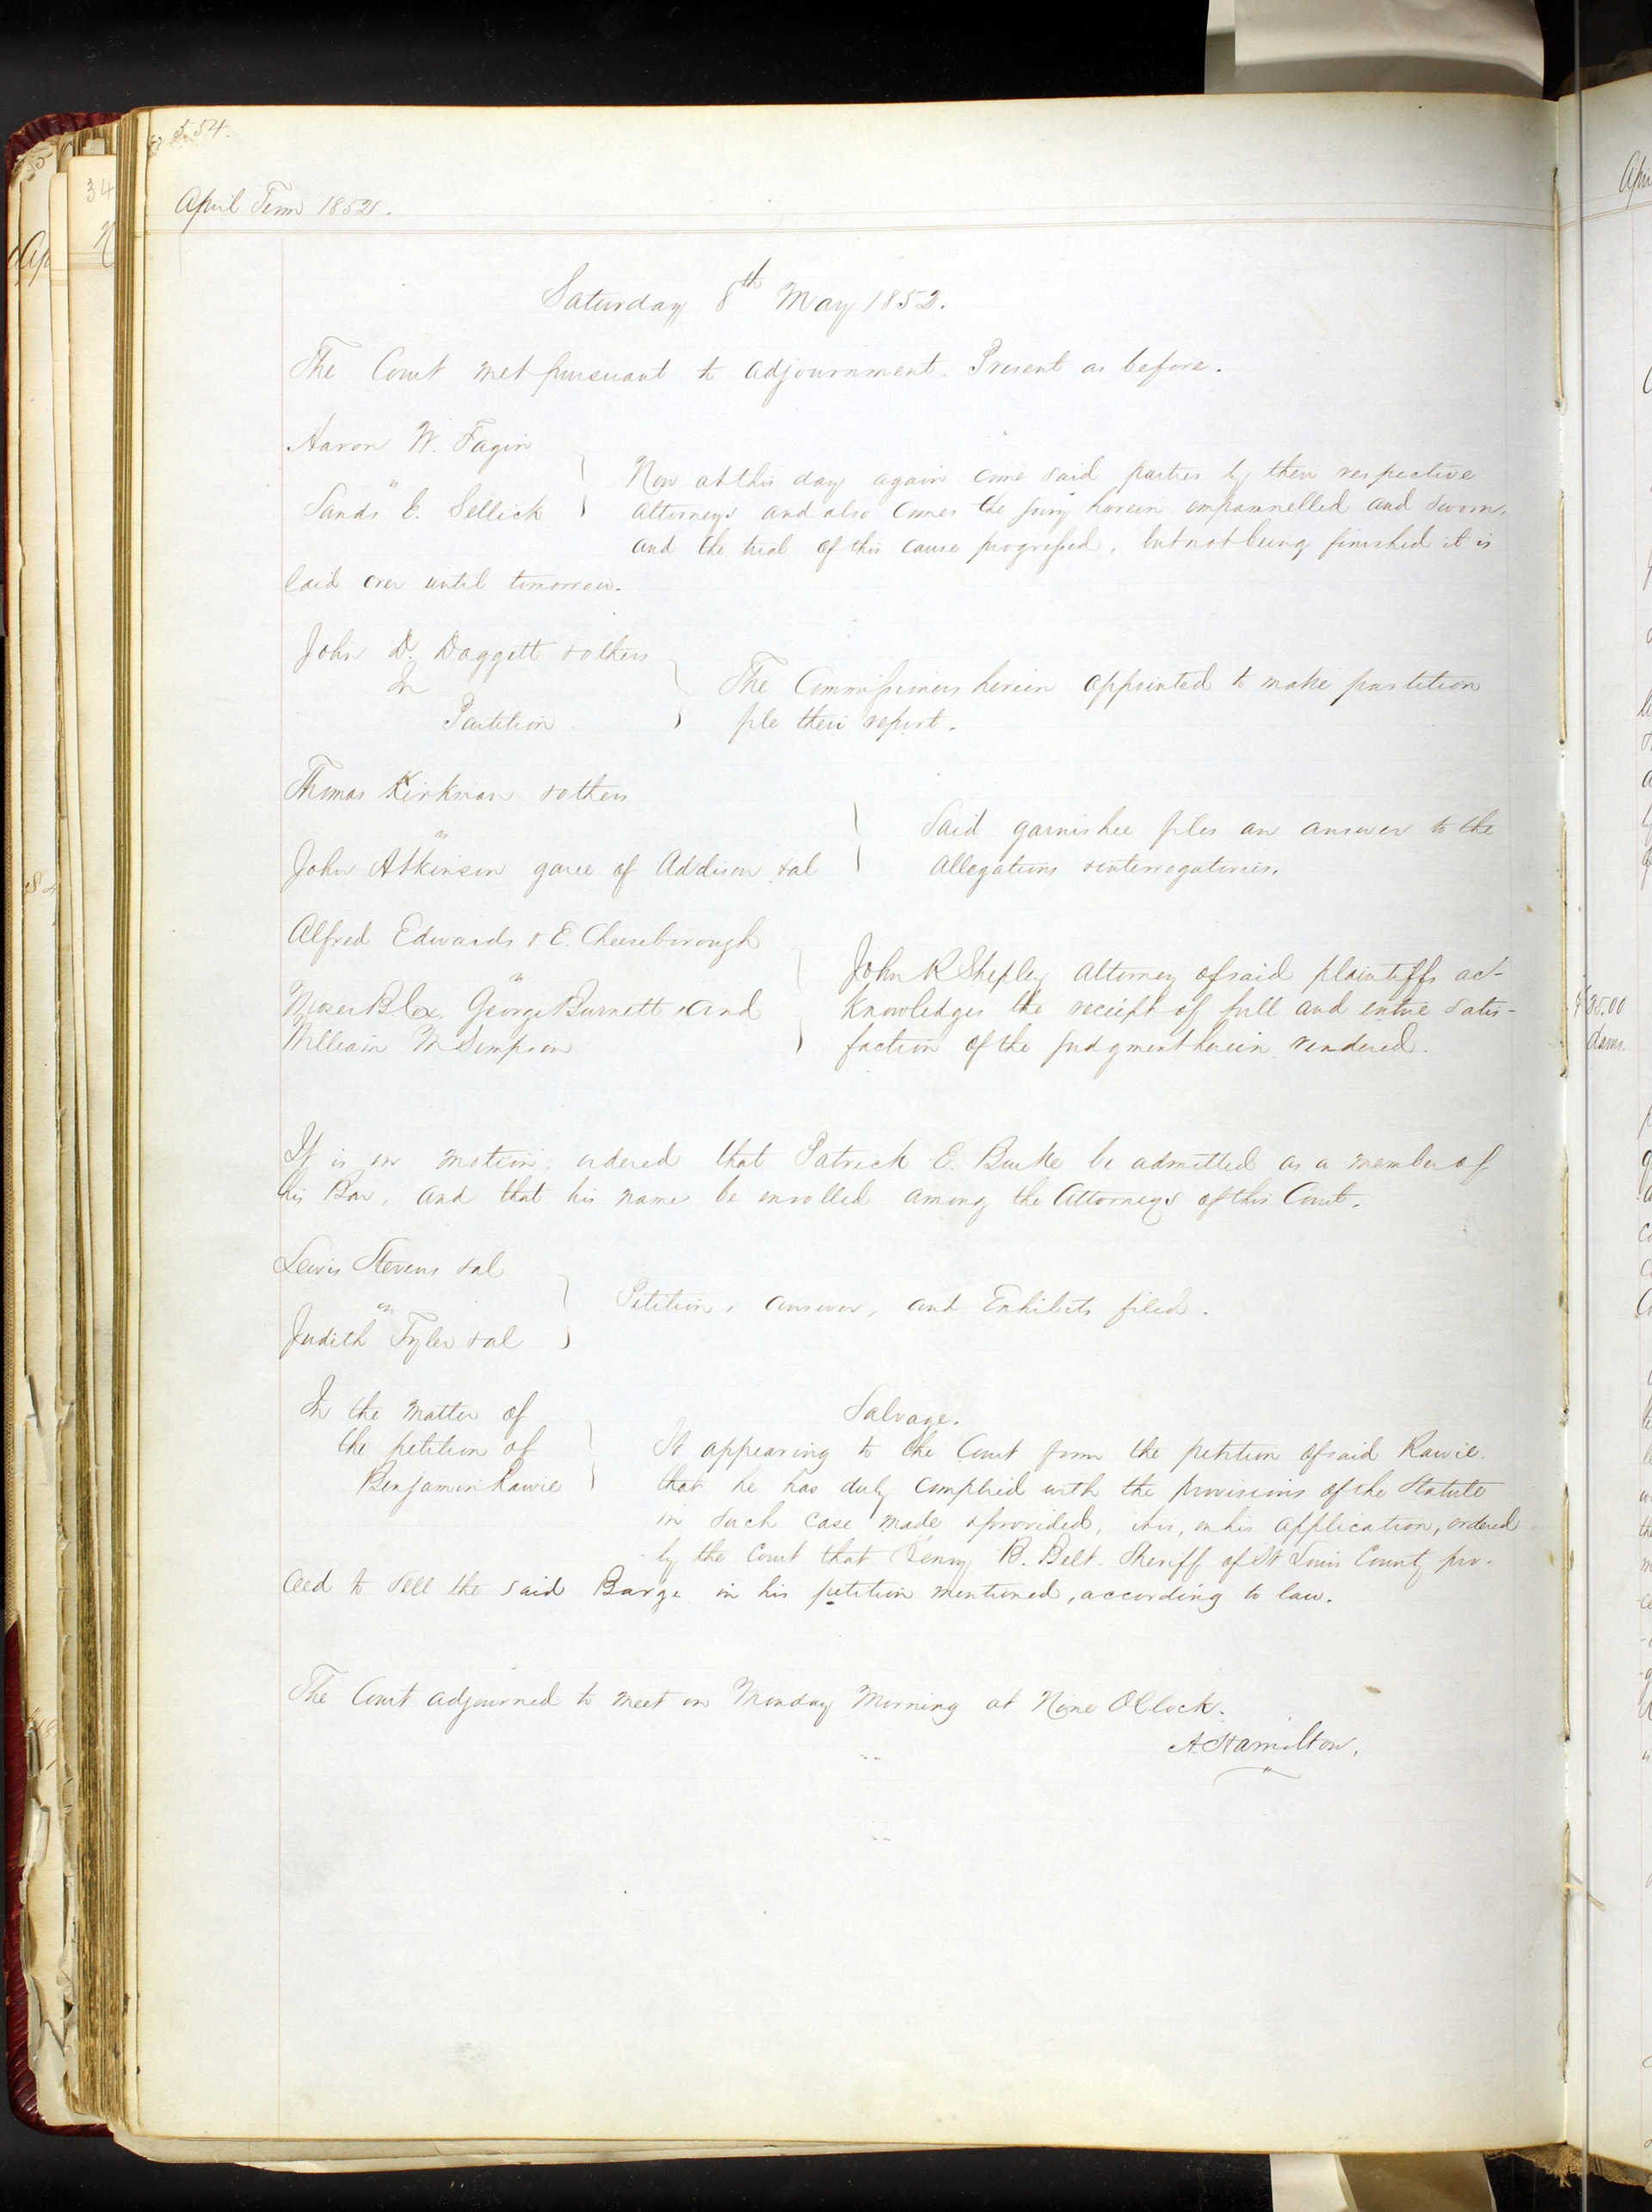 554.
April Term 1852.
Saturday 8th May 1852.
The Court met pursuant to adjournment. Present as before.
Aaron W. Fagin
vs
Sands E. Sellick
Now at this day again come said parties by their respective
attorneys and also comes the jury herein empannelled and sworn,
and the trial of this cause progressed, but not being finished it is
laid over until tomorrow.
John D. Daggett & others
In
Partition
The Commissioners herein appointed to make partition
file their report.
Thomas Kirkman & others
vs
John Atkinson garee of Addison & al
Said garnishee files an answer to the
allegations & interrogatories.
Alfred Edwards & E. Cheeseborough
vs
George Burnett & and
William M Simpson
John R Shepley attorney of said plaintiffs ac-
knowledges the receipt of full and entire satis-
faction of the judgment herein rendered.
It is on motion, ordered that Patrick E. Burke be admitted as a member of
his Bar, and that his name be enrolled among the Attorneys of this Court.
Lewis Stevens & al
vs
Judith Tyler & al
Petition, answer, and Exhibits filed.
In the matter of
the petition of
Benjamin Rawie
Salvage.
It appearing to the Court from the petition of said Rawie
that he has duly complied with the provisions of the Statute
in such case made & provided, it is, on his application, ordered
by the Court that Henry B. Belt Sheriff of St Louis County pro-
ceed to sell the said Barge in his petition mentioned, according to law.
The Court adjourned to meet on Monday Morning at Nine OClock.
A. Hamilton,